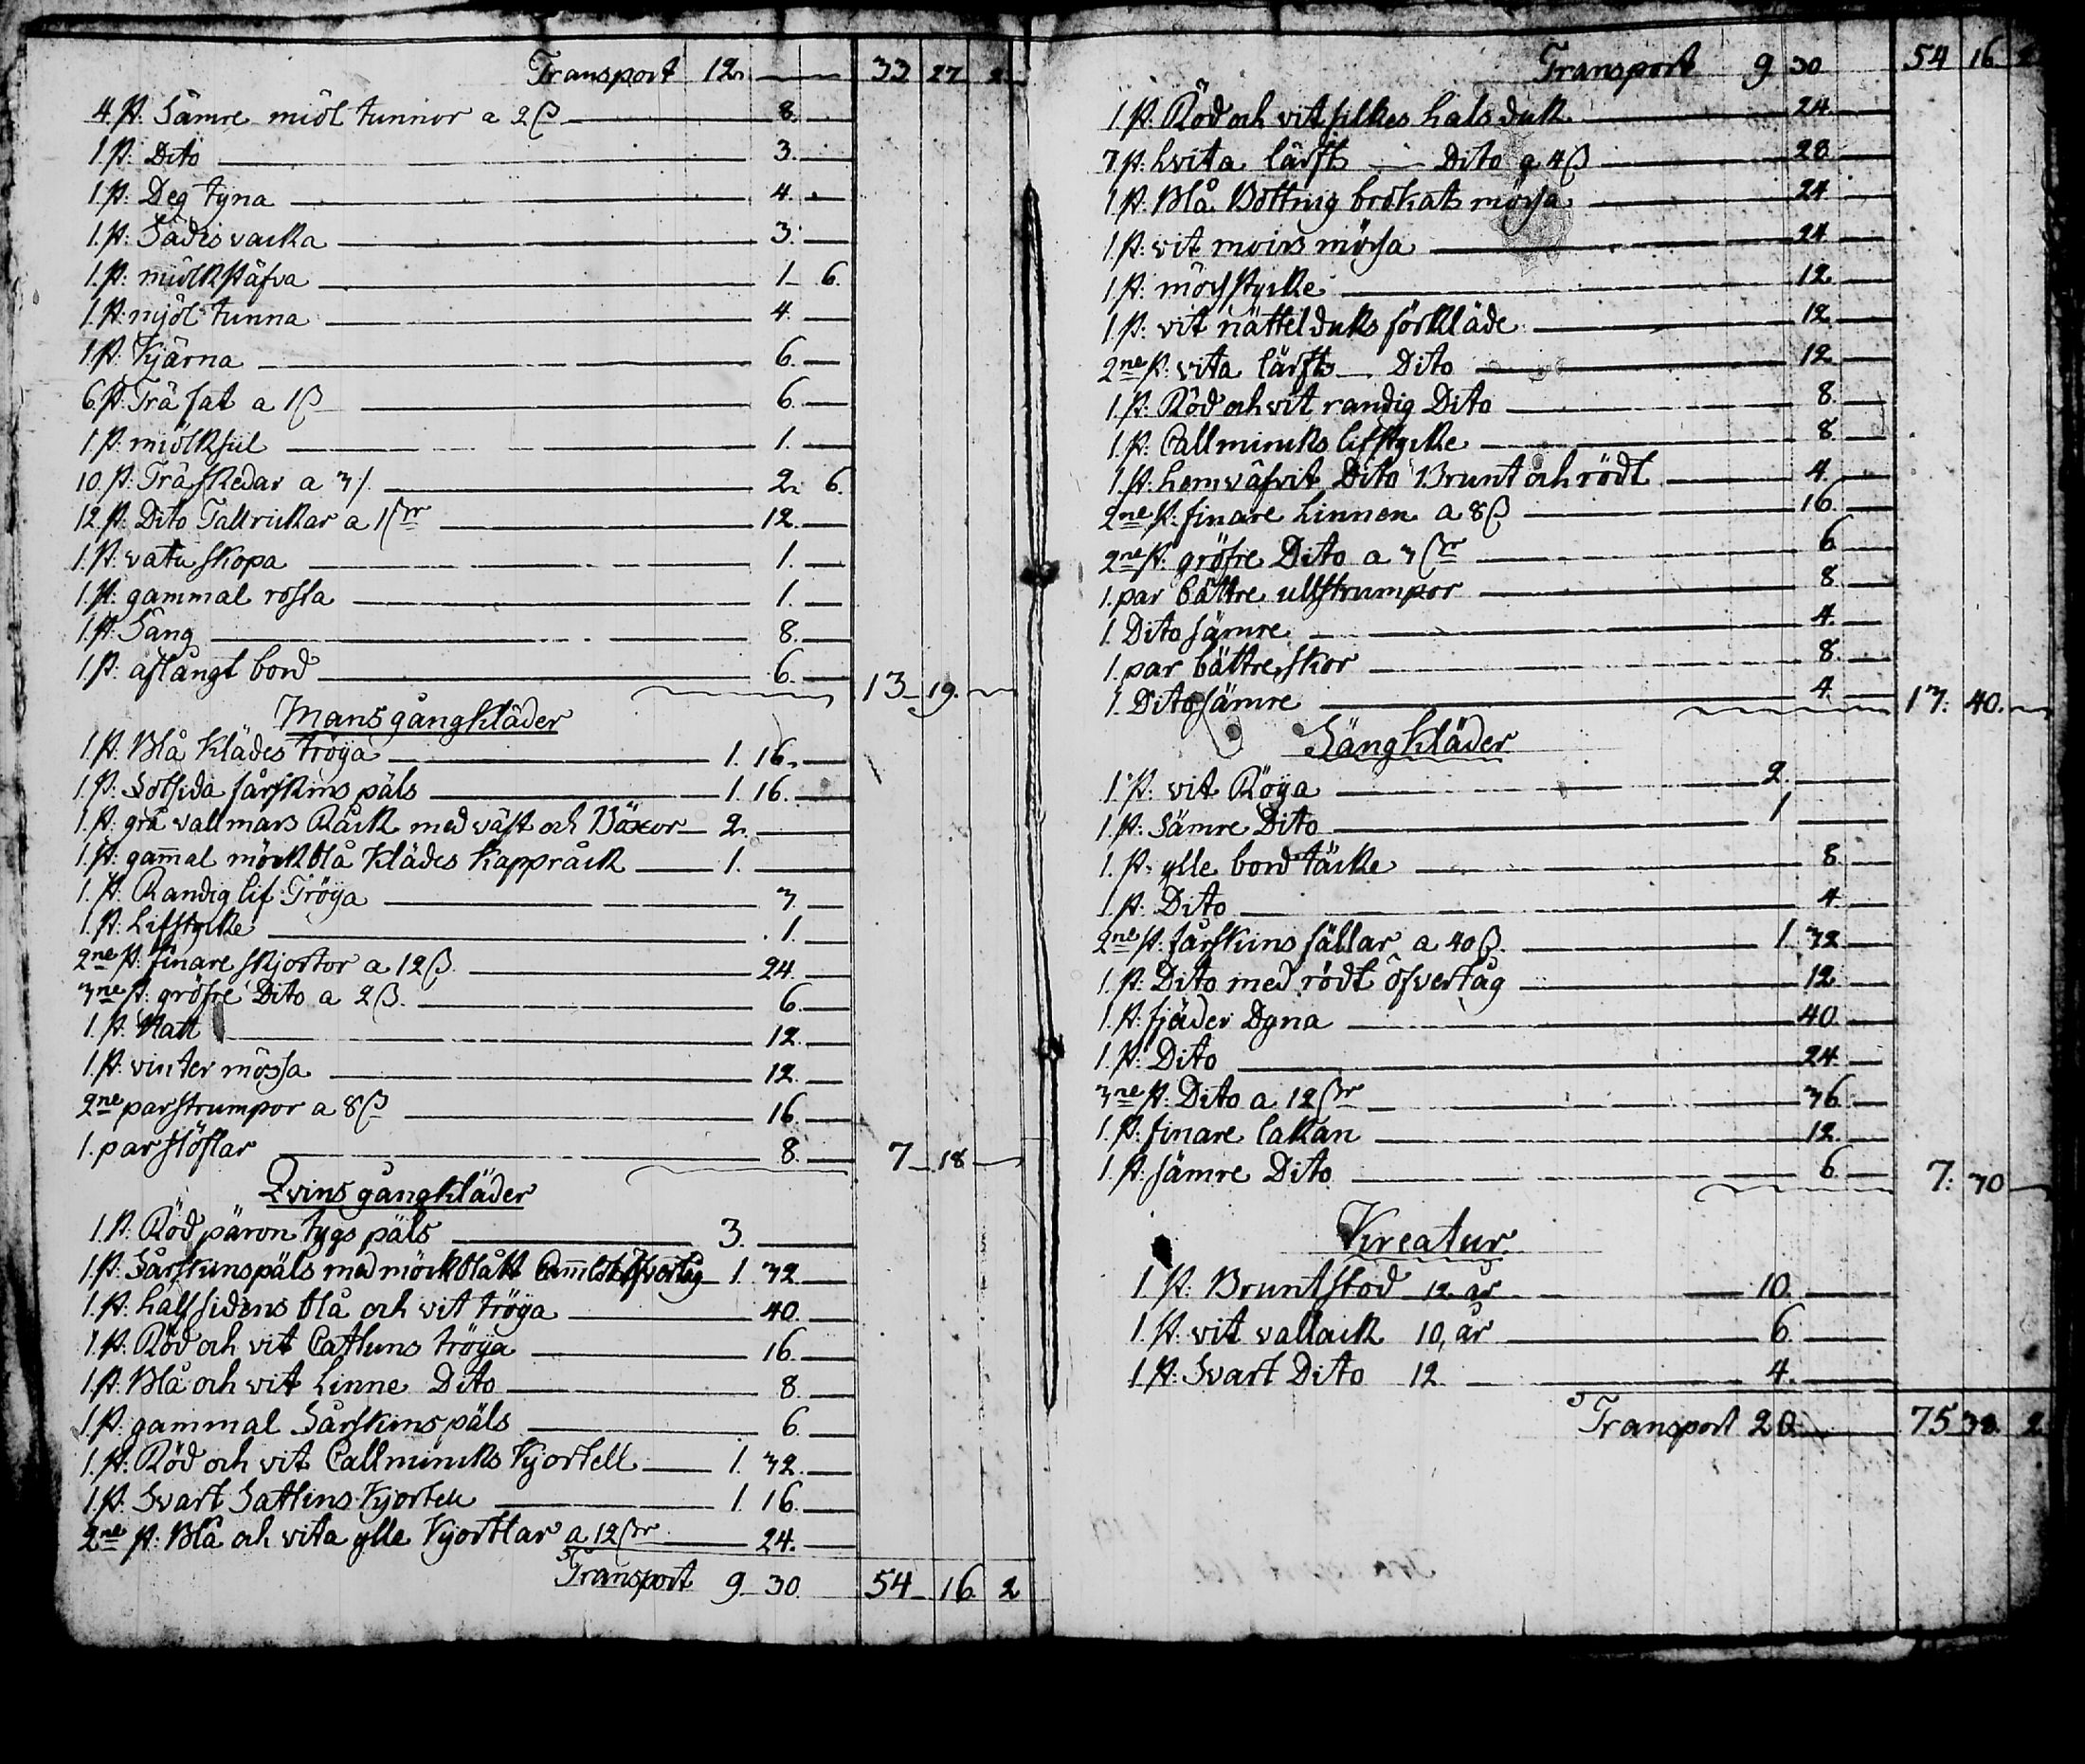 Transport 12. — 33 27 2
4. st: Sämre miöl tunnor a 2ß — 8.
1. st: Dito — 3.
1. st: Deg tyna — 4.
1. st: Sädes vacka — 3.
1. st: miölkstäfva — 1 6.
1. st: mjöl tunna — 4.
1. st: Kjärna — 6.
6. st: Trä fat a 1ß — 6.
1. st: miölksil — 1.
10. st: Träskedar a 3/. — 2. 6.
12. st: Dito Tallrickar a 1ßr — 12.
1. st: vatu skopa — 1.
1. st: gammal rossa — 1.
1. st: Säng — 8.
1. st: aflångt bord — 6. 13 19.
Mans gångkläder
1. st: Blå Klädes tröya — 1. 16.
1. st: Sotsida fårskins päls — 1. 16.
1. st: grå vallmars Råck med väst och Böxor — 2.
1. st: gam̄al mörkblå Klädes Kappråck — 1.
1. st: Randig lif Tröya — 3
1. st: Lifstycke — 1.
2ne st: finare skjortor a 12ß — 24.
3ne st: gröfre Dito a 2ß. — 6.
1. st: Hatt — 12.
1. st: vinter mössa — 12.
2ne par strumpor a 8ß — 16.
1. par stöflar — 8. 7 18
Qvins gångkläder
1. st: Röd päron tygs päls — 3.
1. st: Fårskinspäls med mörkblått Cam̄lots öfvertåg — 1. 32
1. st: half sidens blå och vit tröya — 40.
1. st: Röd och vit Cattuns tröya — 16.
1. st: Blå och vit Linne Dito — 8.
1. st: gammal Fårskins päls — 6.
1. st: Röd och vit Callmincks Kjortell — 1. 32.
1. st: Svart Sattins Kjortell — 1. 16.
2ne st: Blå och vita ylle Kjorttlar a 12ßr — 24.
Transport 9 30. 54 16. 2
Transport 9 30 54 16 2
1. st: Röd och vit silkes hals duk — 24.
7. st: hvita lärfts — Dito a 4ß — 28.
1. st: Blå Bottnig brokats mössa — 24
1. st: vit moirs mössa — 24
1. st: mösstycke — 12.
1. st: vit nättelduks förkläde — 12
2ne st: vita lärfts — Dito — 12
1. st: Röd och vit randig Dito — 8.
1. st: Callmincks lifstycke — 8.
1. st: hemväfvit Dito Brunt och rödt — 4.
2ne st: finare Linnen a 8ß — 16.
2ne st: gröfre Dito a 3ßr — 6
1. par bättre ullstrumpor — 8
1. Dito sämre — 4.
1. par bättre skor — 8.
1. Dito sämre — 4. 13: 40.
Sängkläder
1. st: vit Röya — 2.
1. st: Sämre Dito — 1
1. st: ylle bord täcke — 8
1. st: Dito — 4.
2ne st: fårskins fällar a 40ß. — 1. 32
1. st: Dito med rödt öfvertåg — 12.
1. st: fjäder Dyna — 40.
1. st: Dito — 24
3ne st: Dito a 12ßr — 36
1. st: finare lakan — 12.
1. st: sämre Dito — 6. 7: 30
Kreatur
1 st: Brunt stod 12 år — 10.
1. st: vit vallack 10, år — 6
1. st: Svart Dito 12 — 4.
Transport 20 — 75 38. 2